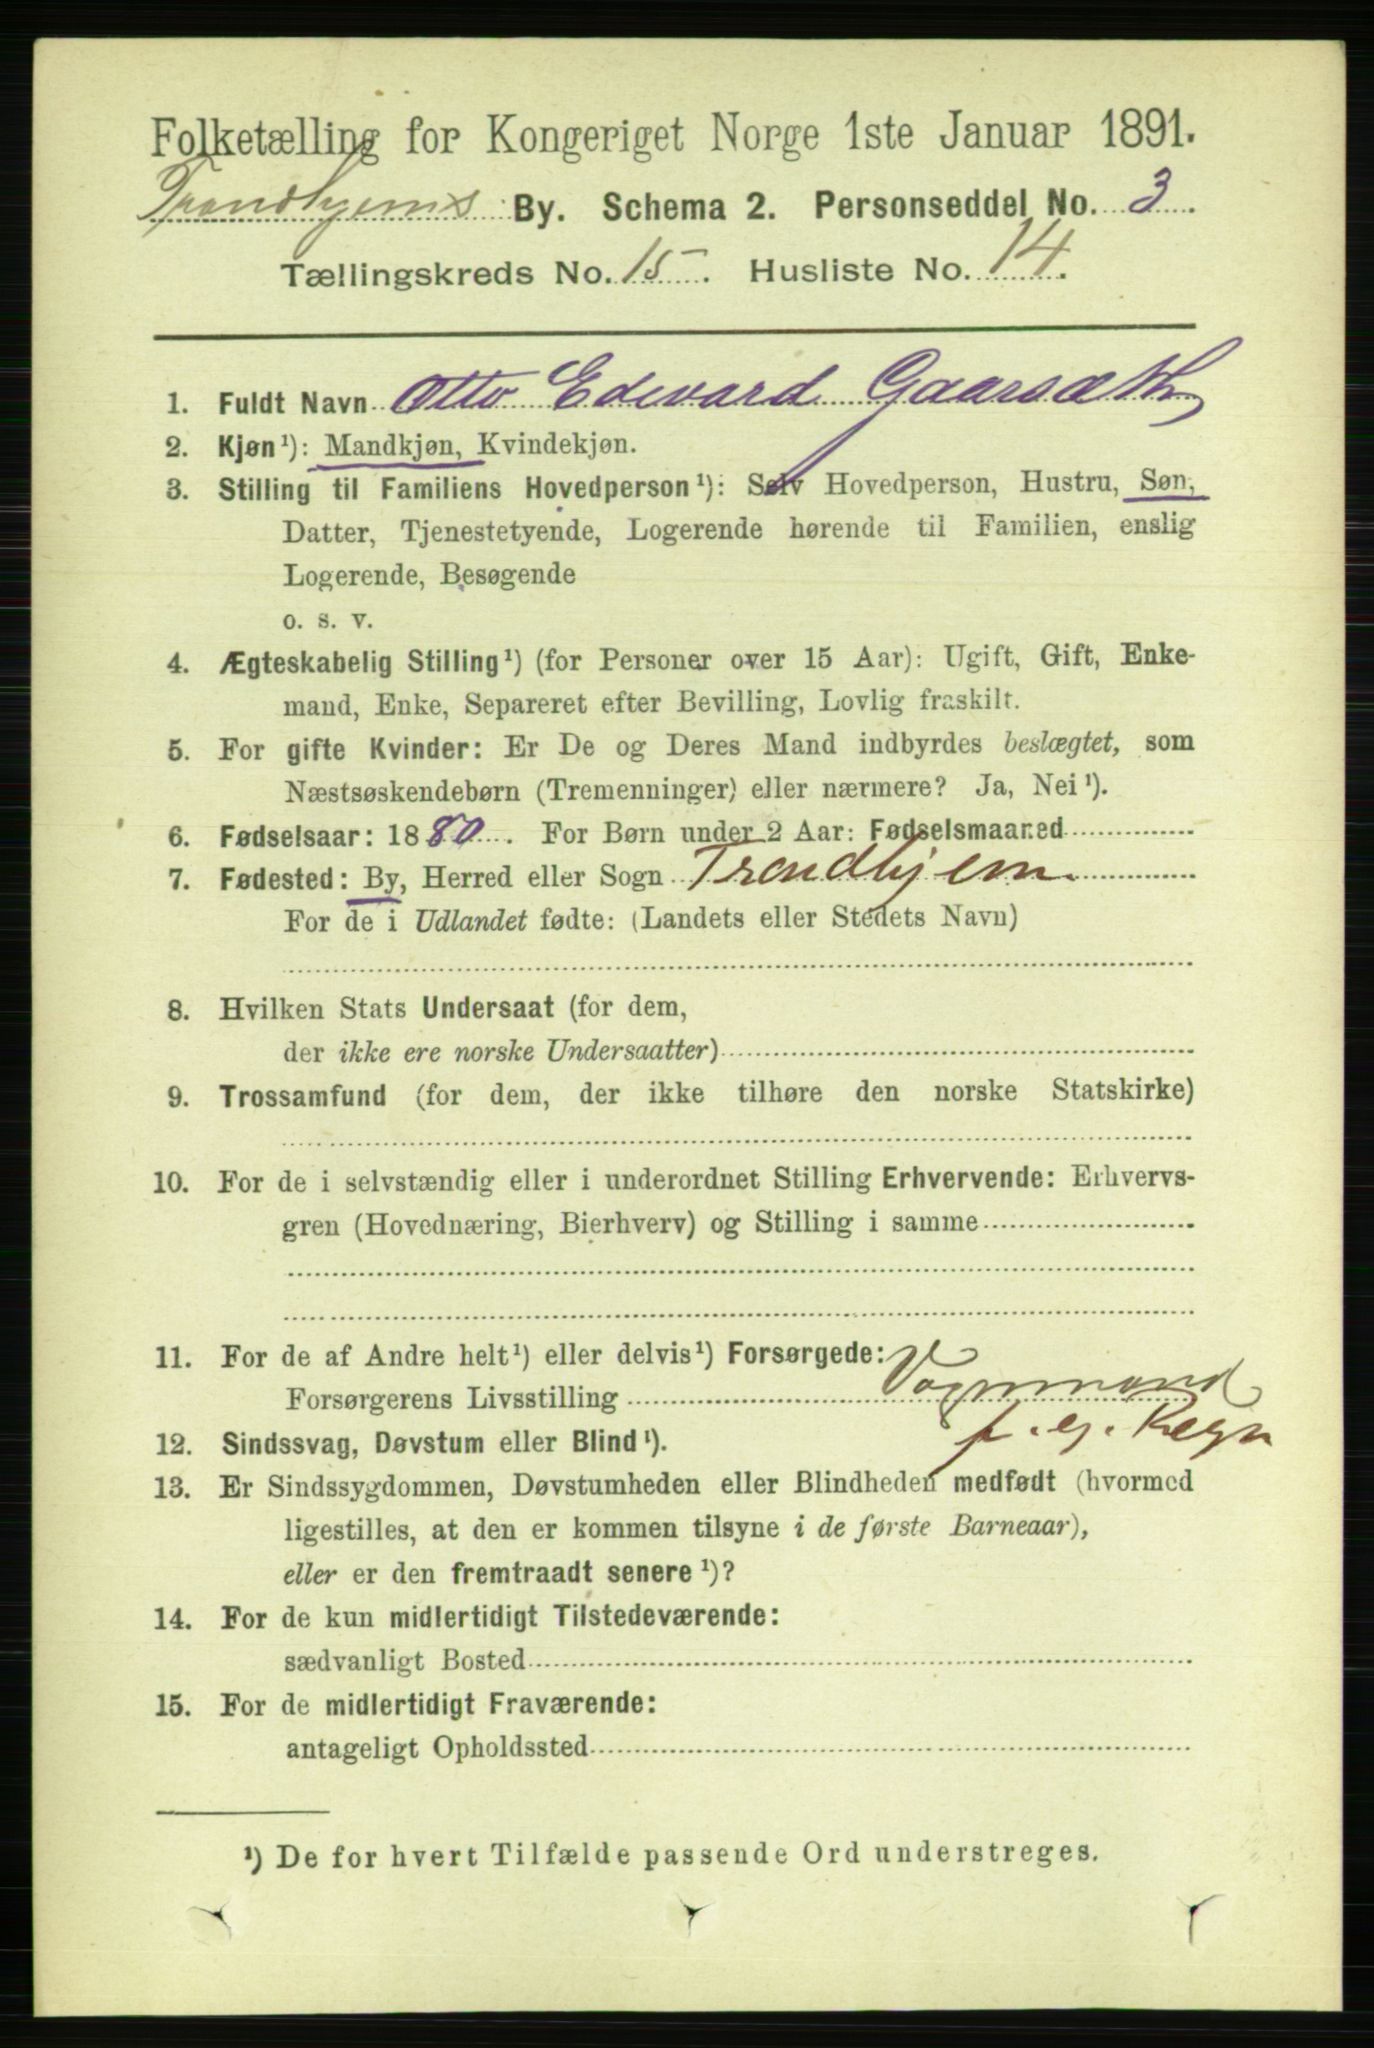 Folketælling for Kongeriget Norge 1ste Januar 1891.
Trondhjems By. Schema 2. Personseddel No. 3.
Tællingskreds No. 15. Husliste No. 14.
1. Fuldt Navn Otto Edevard Gaarsæth
2. Kjøn¹): Mandkjøn, Kvindekjøn.
3. Stilling til Familiens Hovedperson¹): Selv Hovedperson, Hustru, Søn,
Datter, Tjenestetyende, Logerende hørende til Familien, enslig
Logerende, Besøgende
o. s. v.
4. Ægteskabelig Stilling¹) (for Personer over 15 Aar): Ugift, Gift, Enke-
mand, Enke, Separeret efter Bevilling, Lovlig fraskilt.
5. For gifte Kvinder: Er De og Deres Mand indbyrdes beslægtet, som
Næstsøskendebørn (Tremenninger) eller nærmere? Ja, Nei¹).
6. Fødselsaar: 1880. For Børn under 2 Aar: Fødselsmaaned
7. Fødested: By, Herred eller Sogn Trondhjem
For de i Udlandet fødte: (Landets eller Stedets Navn)
8. Hvilken Stats Undersaat (for dem,
der ikke ere norske Undersaatter)
9. Trossamfund (for dem, der ikke tilhøre den norske Statskirke)
10. For de i selvstændig eller i underordnet Stilling Erhvervende: Erhvervs-
gren (Hovednæring, Bierhverv) og Stilling i samme
11. For de af Andre helt¹) eller delvis¹) Forsørgede:
Forsørgerens Livsstilling Vognmand
f. eg. Regn
12. Sindssvag, Døvstum eller Blind¹).
13. Er Sindssygdommen, Døvstumheden eller Blindheden medfødt (hvormed
ligestilles, at den er kommen tilsyne i de første Barneaar),
eller er den fremtraadt senere¹)?
14. For de kun midlertidigt Tilstedeværende:
sædvanligt Bosted
15. For de midlertidigt Fraværende:
antageligt Opholdssted
¹) De for hvert Tilfælde passende Ord understreges.